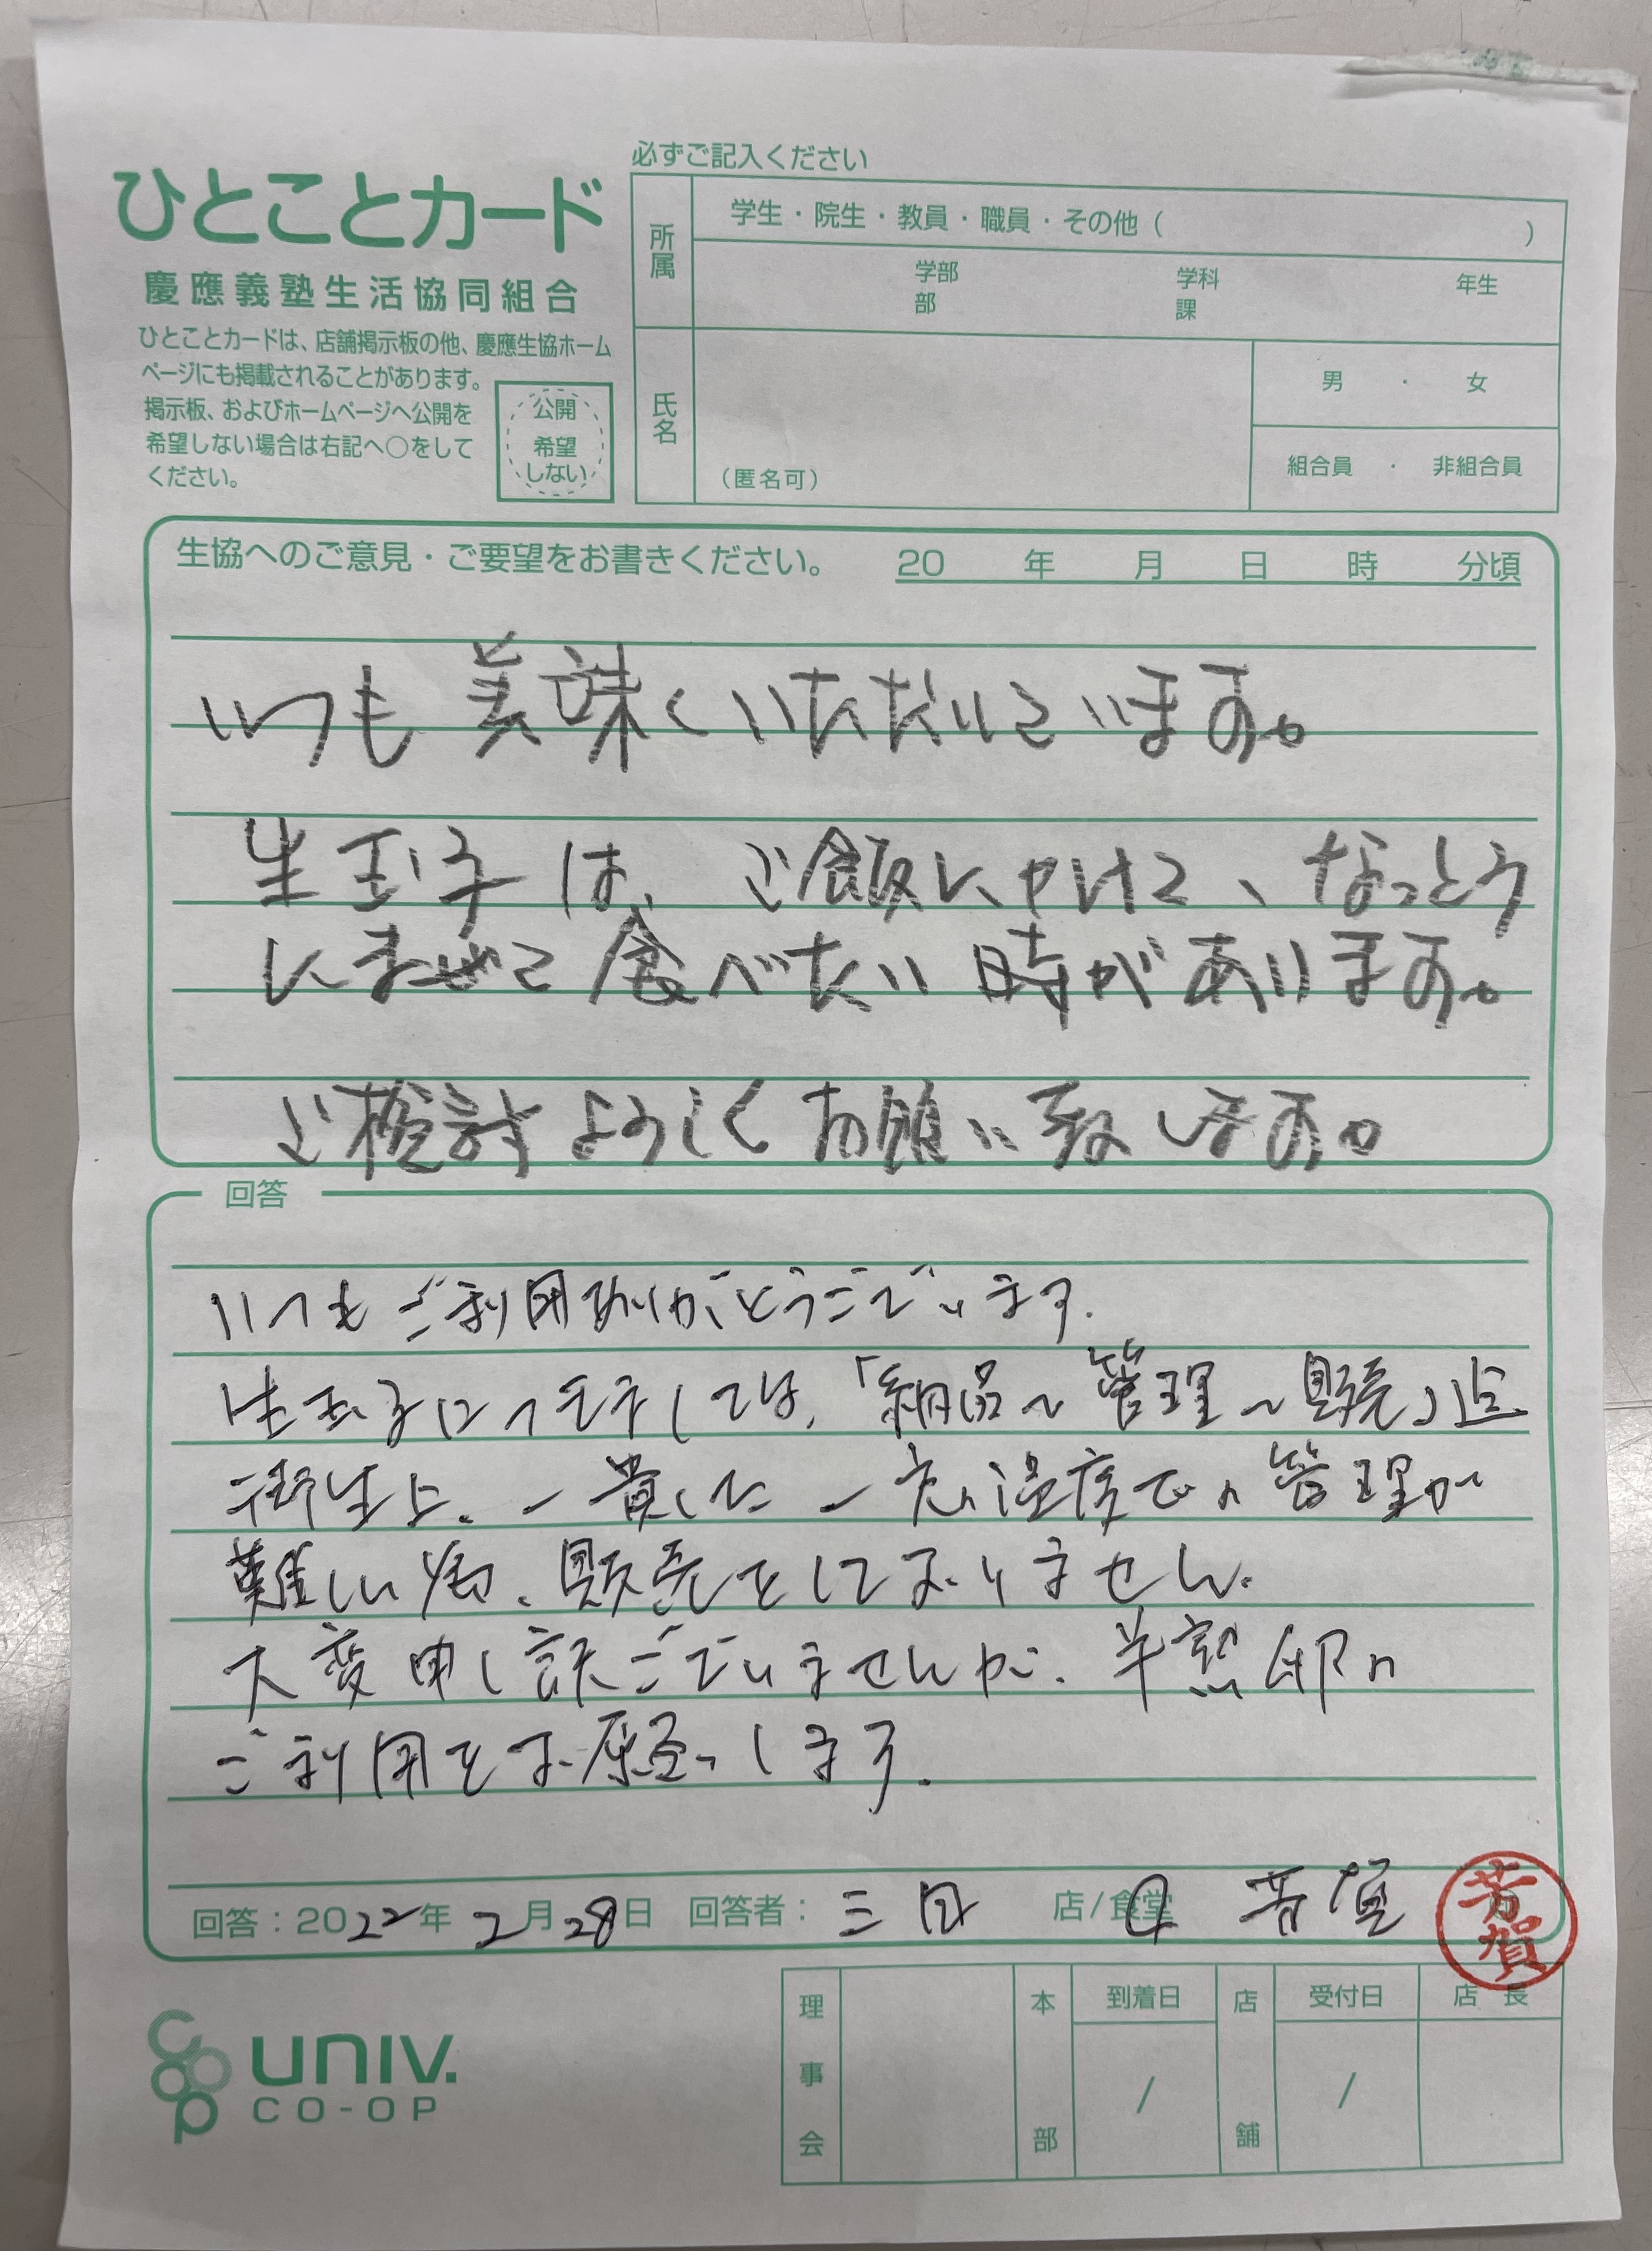 ひとことカード
慶應義塾生活協同組合
ひとことカードは、店舗掲示板の他、慶應生協ホーム
ページにも掲載されることがあります。
掲示板、およびホームページへ公開を
希望しない場合は右記へ○をして
ください。
公開
希望
しない
必ずご記入ください
所属
学生・院生・教員・職員・その他（　　　）
学部　学科　年生
部　課
氏名
（匿名可）
男・女
組合員・非組合員
生協へのご意見・ご要望をお書きください。　20　年　月　日　時　分頃
いつも美味くいただいています。
生玉子は、ご飯にかけて、なっとう
にまぜて食べたい時があります。
ご検討よろしくお願い致します。
回答
いつもご利用ありがとうございます.
生玉子につきましては、「納品〜管理〜販売」迄
衛生上、一貫した一定温度での管理が
難しい為、販売をしておりません.
大変申し訳ございませんが、半熟卵の
ご利用をお願いします.
回答：2022年2月28日　回答者：三田　店/食堂　芳賀
芳賀
UNIV.
CO-OP
理事会
本部
到着日
/
店舗
受付日
/
店長